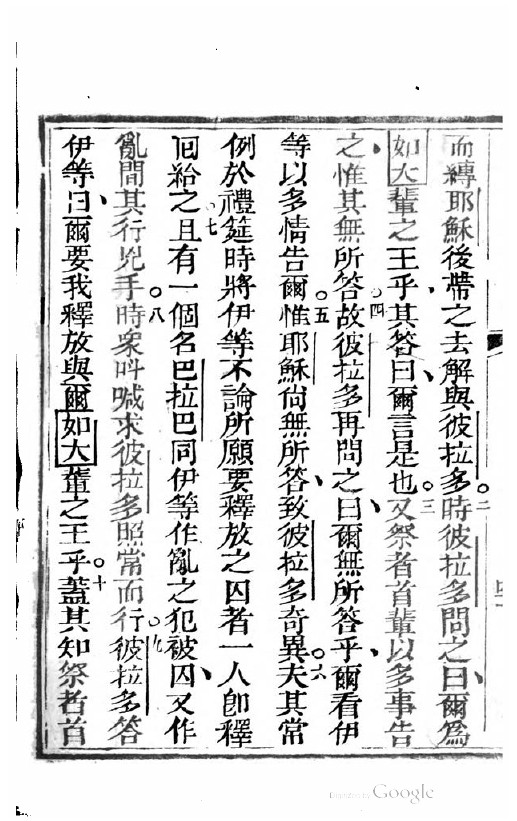 而縛耶穌後帶之去解與彼拉多。二時彼拉多問之曰、爾為
如大輩之王乎、其答曰、爾言是也。三又祭者首輩以多事告
之、惟其無所答。四故彼拉多再問之、曰爾無所答乎、爾看伊
等以多情告爾。五惟耶穌尚無所答、致彼拉多奇異。六夫其常
例於禮筵時將伊等不論所願要釋放之囚者一人卽釋
囘給之。七且有一個名巴拉巴同伊等作亂之犯被囚、又作
亂間其行兇手。八時眾呌喊求彼拉多照常而行。九彼拉多答
伊等、曰爾要我釋放與爾如大輩之王乎。十蓋其知祭者首
Digitized by Google